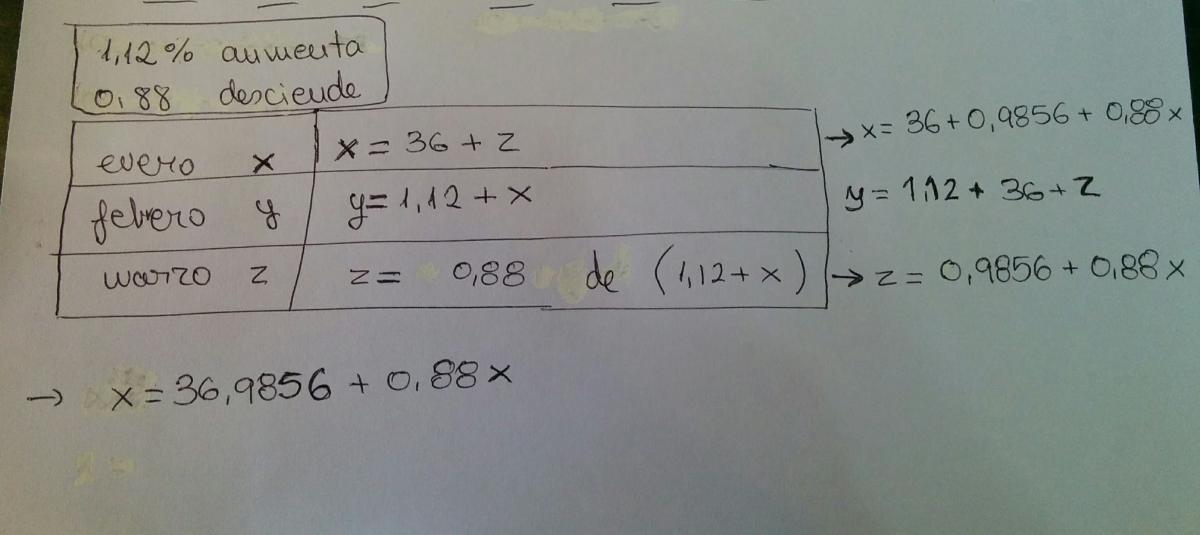 1,12% aumenta
0,88 desciende
enero x x = 36 + z
febrero y y = 1,12 + x
marzo z z = 0,88 de (1,12 + x)
→ x = 36 + 0,9856 + 0,88 x
y = 1,12 + 36 + z
→ z = 0,9856 + 0,88 x
→ x = 36,9856 + 0,88 x